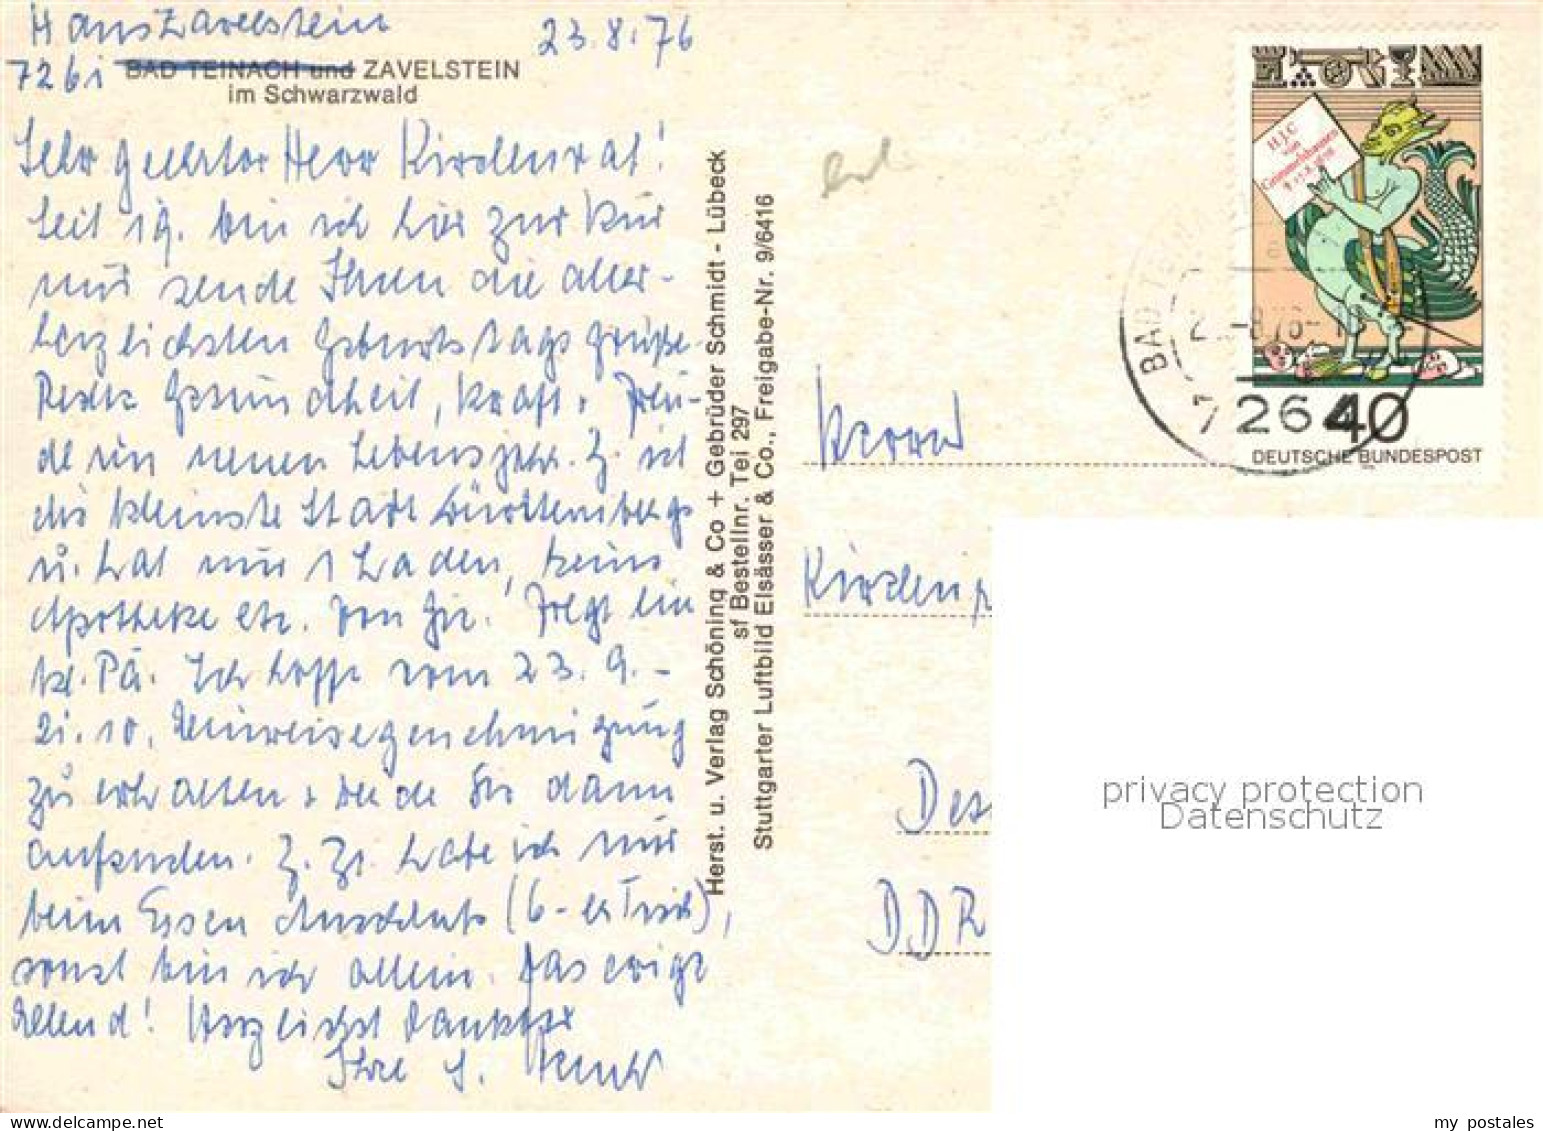 Haus Zavelstein
23.8.76
7261 BAD TEINACH und ZAVELSTEIN
im Schwarzwald
Sehr geehrter Herr Kirchenrat!
Seit 19. bin ich hier zur Kur
und sende Ihnen die aller-
herzlichsten Geburtstagsgrüße.
Recht Gesundheit, Kraft u. Freu-
de im neuen Lebensjahr. Z. ist
die kleinste Stadt Württembergs
u. hat nur 1 Laden, keine
Apotheke etc. Von hier folgt ein
kl. Pä. Ich hoffe vom 23.9.-
21.10. Einreisegenehmigung
zu erhalten u. werde Sie dann
aufsuchen. Z. Zt. habe ich nur
beim Essen Anschluß (6-er Tisch),
sonst bin ich allein. Das ewige
Elend! Herzlichst dankbar
Ihre
Herst. u. Verlag Schöning & Co + Gebrüder Schmidt - Lübeck
sf Bestellnr. Tei 297
Stuttgarter Luftbild Elsässer & Co., Freigabe-Nr. 9/6416
H.J.C
von
Grimmelshausen
BAD TEIN
7264
40
DEUTSCHE BUNDESPOST
Herrn
Kirchen
Des
DDR
privacy protection
Datenschutz
my postales